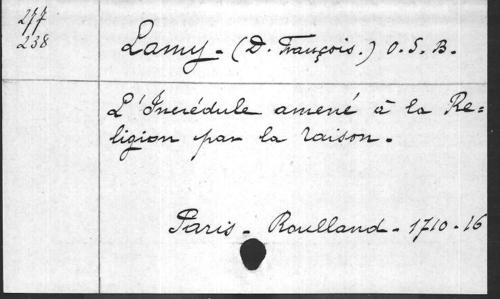 277
238
Lamy - (D. François.) O. S. B.
L'Incrédule amené à la Re=
ligion par la raison.
Paris - Roulland - 1710 - 16